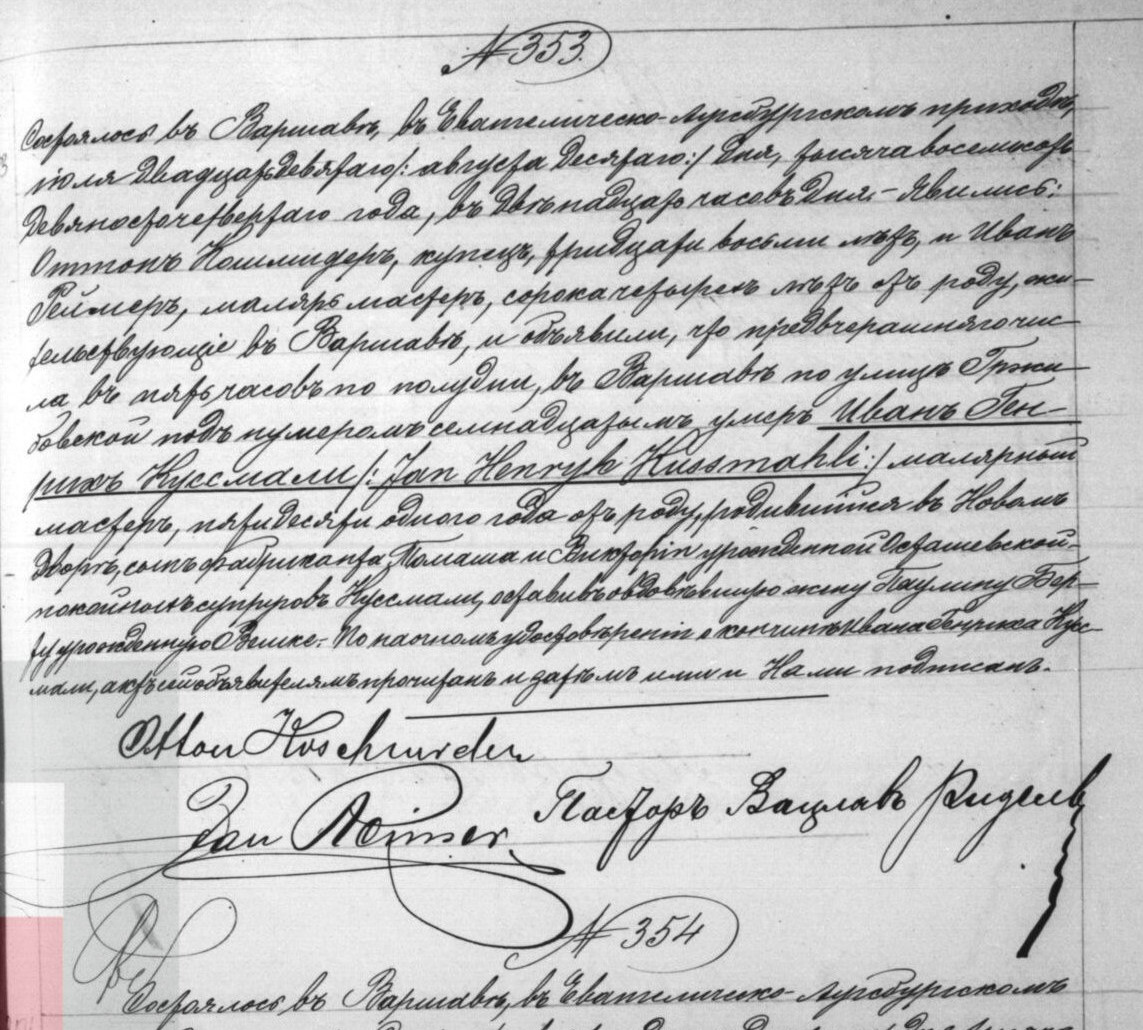 № 353.
Состоялось въ Варшавѣ, въ Евангелическо-Аугсбургскомъ приходѣ,
іюля двадцать девятаго /: августа десятаго :/ дня, тысяча восемьсотъ
девяносто четвертаго года, въ двѣнадцать часовъ дня. - Явились:
Оттонъ Кошмидеръ, купецъ, тридцати восьми лѣтъ, и Иванъ
Реймеръ, маляръ мастеръ, сорока четырехъ лѣтъ отъ роду, жи-
тельствующіе въ Варшавѣ, и объявили, что предвчерашняго чис-
ла въ пять часовъ по полудни, въ Варшавѣ по улицѣ Гржи-
бовской подъ нумеромъ семнадцатымъ, умеръ Иванъ Ген-
рихъ Куссмали /: Jan Henryk Kussmahli :/ малярный
мастеръ, пятидесяти одного года отъ роду, родившійся въ Новомъ
Дворѣ, сынъ фабриканта Томаша и Викторіи урожденной Осташевской,
покойныхъ супруговъ Куссмали, оставивъ овдовѣвшую жену Паулину Бер-
ту урожденную Велике. По наочномъ удостовѣреніи о кончинѣ Ивана Генриха Кусс-
мали, актъ сей объявителямъ прочитанъ и затѣмъ ими и Нами подписанъ.
Otton Koschmider
Jan Reimer. Пасторъ Вацлавъ
№ 354
Состоялось въ Варшавѣ, въ Евангелическо-Аугсбургскомъ